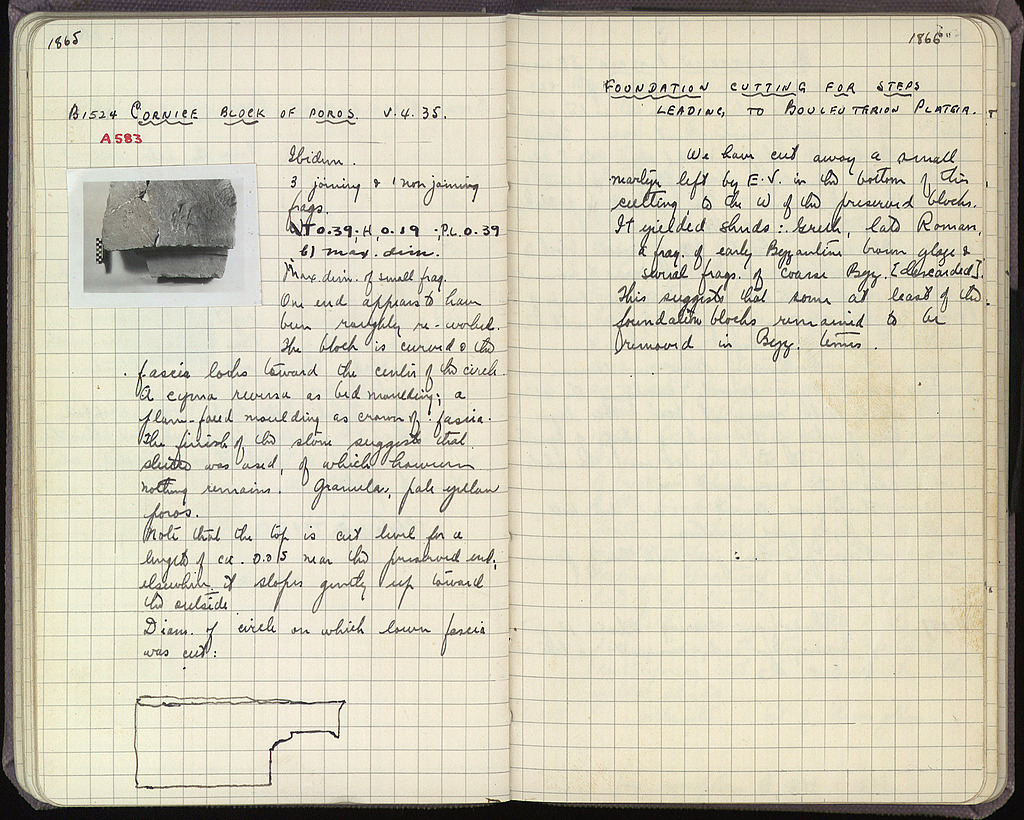 1865
B1524 CORNICE BLOCK OF POROS. V.4.35.
A583
Ibidem.
3 joining & 1 non joining
frags.
W 0.39; H, 0.19 ; P.L. 0.39
b) max. dim.
Max. dim. of small frag.
One end appears to have
been roughly re-worked.
The block is curved & the
fascia looks toward the center of the circle.
A cyma reversa as bed moulding; a
plain-faced moulding as crown of fascia.
The finish of the stone suggests that
stucco was used, of which however
nothing remains. Granular, pale yellow
poros.
Note that the top is cut level for a
length of ca. 0.015 near the preserved end;
elsewhere it slopes gently up toward
the outside
Diam. of circle on which lower fascia
was cut:
1866
FOUNDATION CUTTING FOR STEPS
LEADING TO BOULEUTERION PLATEIA.
We have cut away a small
martyr left by E.V. in the bottom of this
cutting, to the W of the preserved blocks.
It yielded sherds: Greek, late Roman,
a frag. of early Byzantine brown glaze &
several frags. of coarse Byz. [discarded].
This suggests that some at least of the
foundation blocks remained to be
removed in Byz. times.